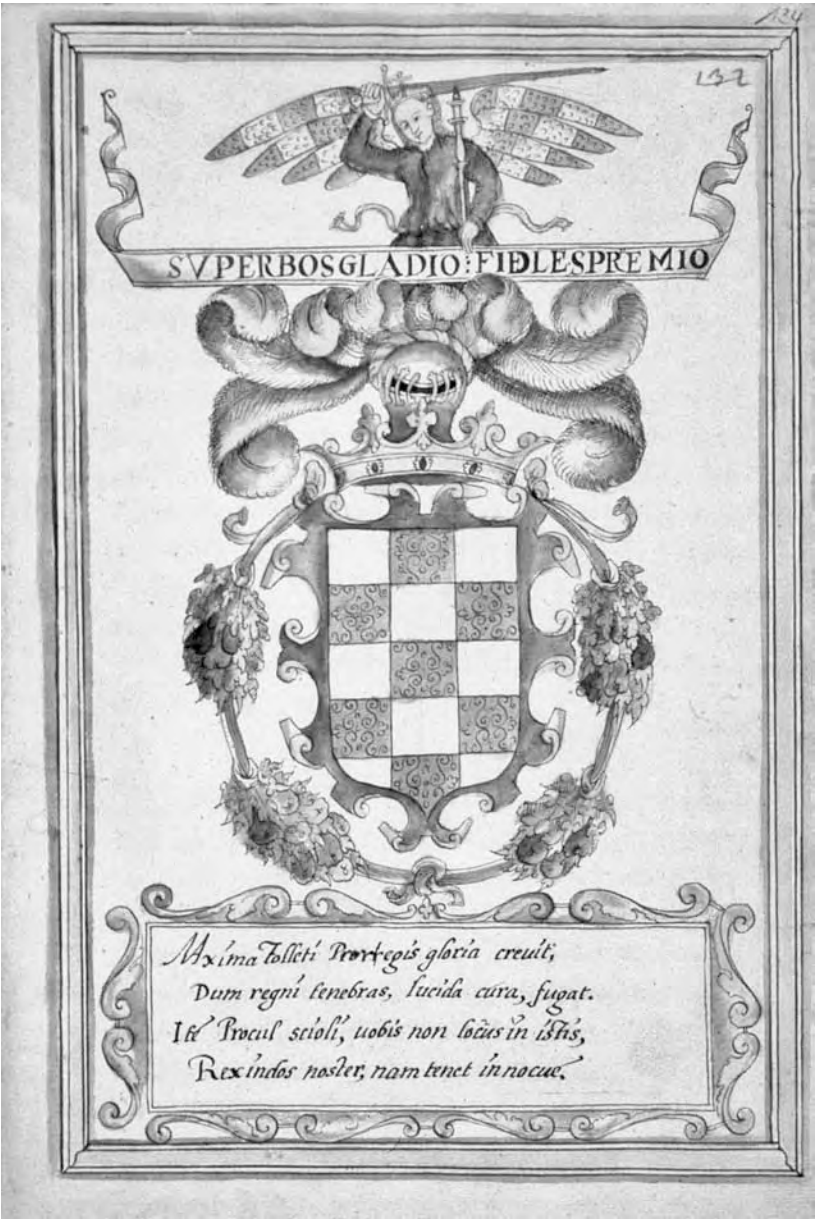 124
132
SVPERBOS GLADIO: FIDLES PREMIO
Maxima Tolleti Prorregis gloria creuit,
Dum regni tenebras, lucida cura, fugat.
Ite Procul scioli, uobis non locus in istis,
Rex indos noster, nam tenet innocue.